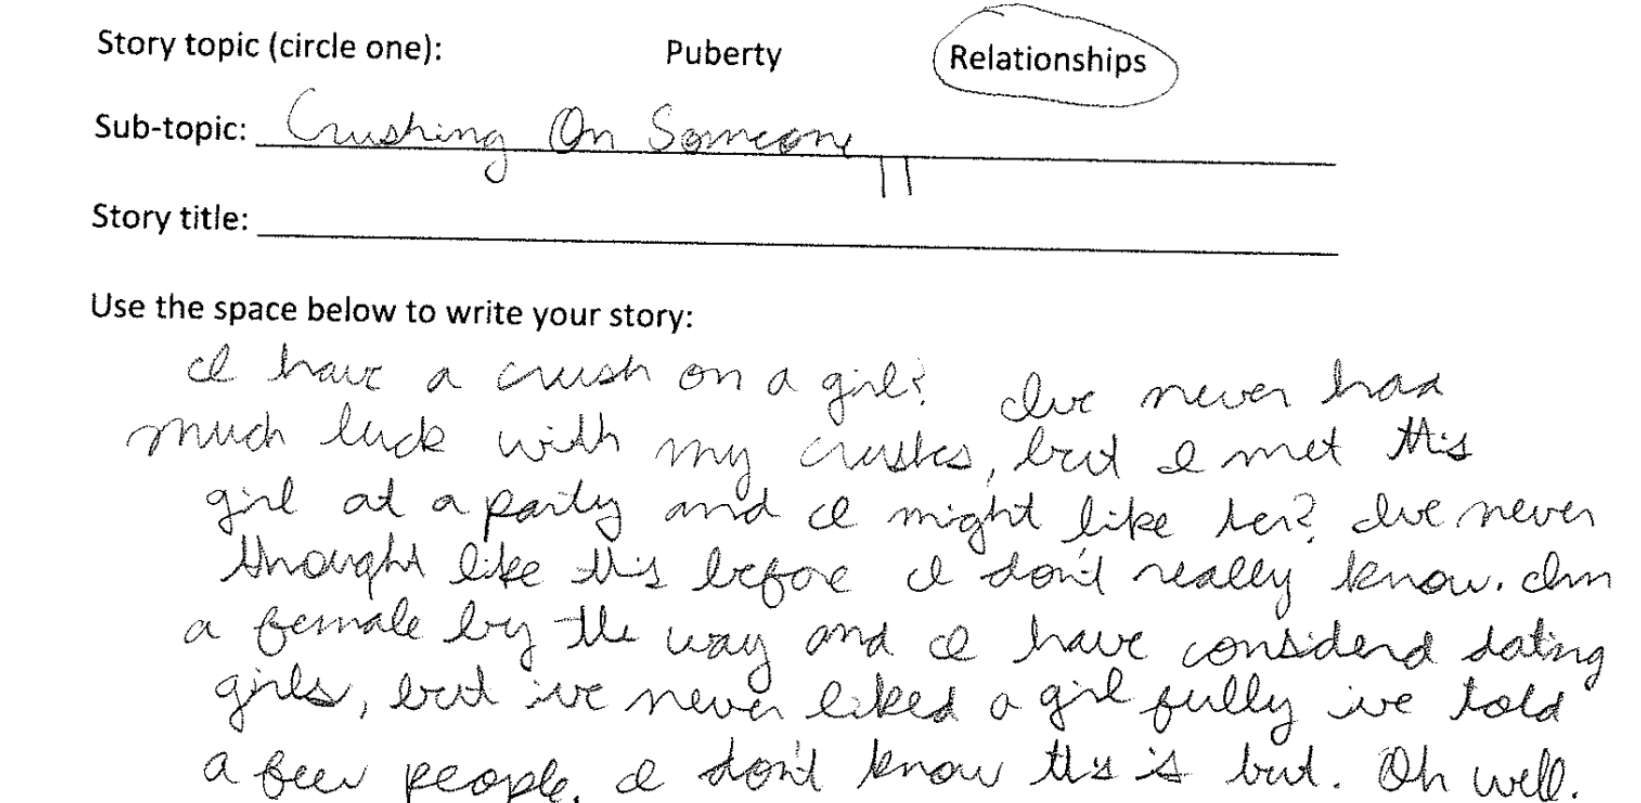 Story topic (circle one): Puberty Relationships
Sub-topic: Crushing On Someone
Story title:
Use the space below to write your story:
I have a crush on a girl? Ive never had
much luck with my crushes, but I met this
girl at a party and I might like her? Ive never
thought like this before I don't really know. Im
a female by the way and I have considerd dating
girls, but ive never liked a girl fully ive told
a few people. I don't know this is but. Oh well.